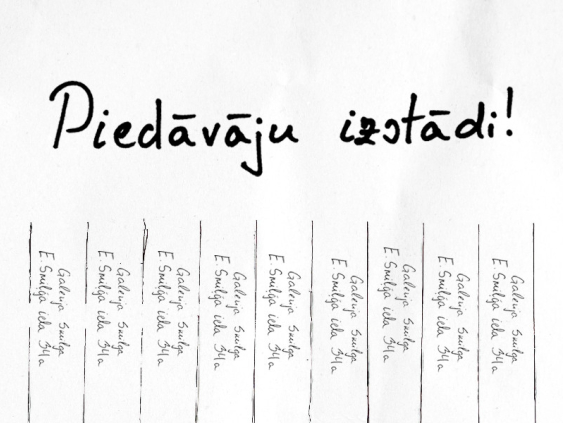 Piedāvāju izstādi!
Galerija Smilga
E. Smiļģa iela 34a
Galerija Smilga
E. Smiļģa iela 34a
Galerija Smilga
E. Smiļģa iela 34a
Galerija Smilga
E. Smiļģa iela 34a
Galerija Smilga
E. Smiļģa iela 34a
Galerija Smilga
E. Smiļģa iela 34a
Galerija Smilga
E. Smiļģa iela 34a
Galerija Smilga
E. Smiļģa iela 34a
Galerija Smilga
E. Smiļģa iela 34a